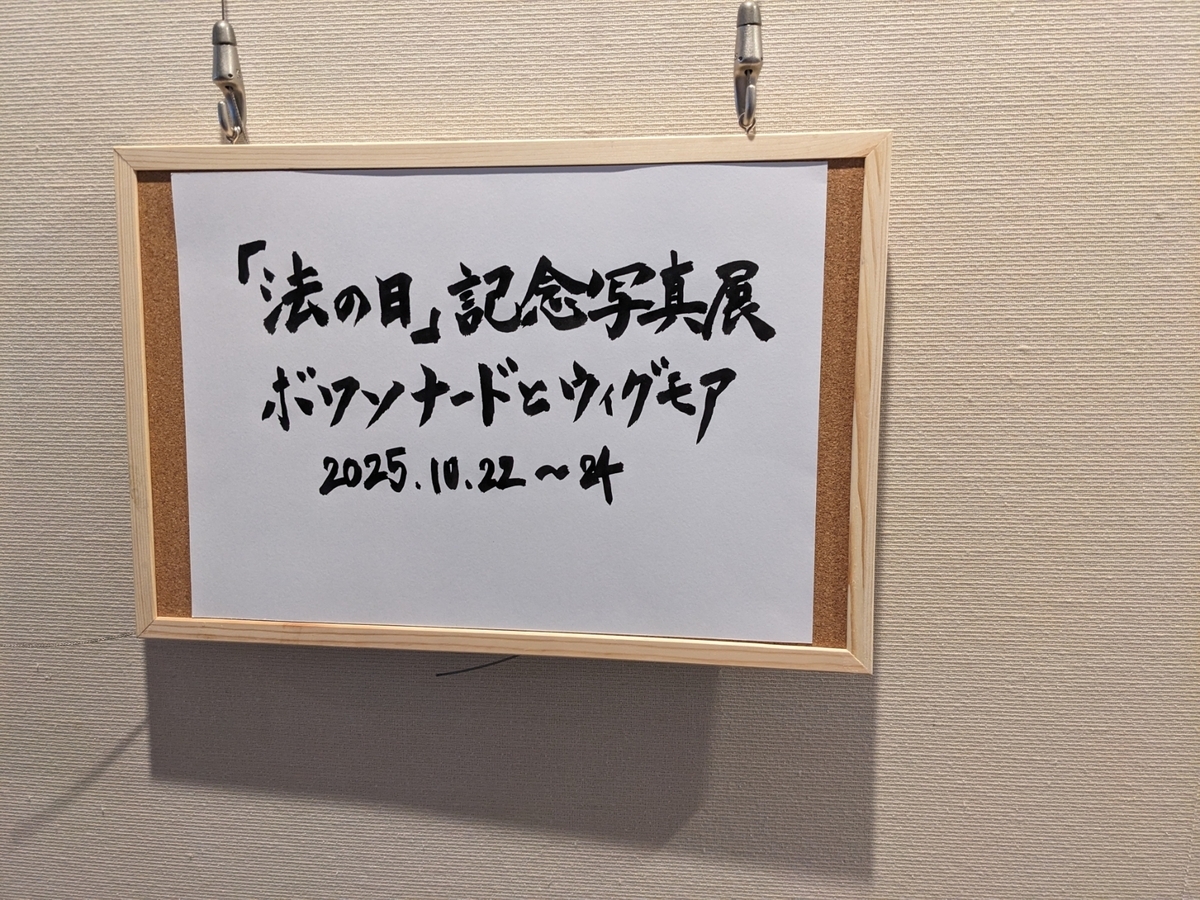 「法の日」記念写真展
ボワソナードとウィグモア
2025.10.22～24